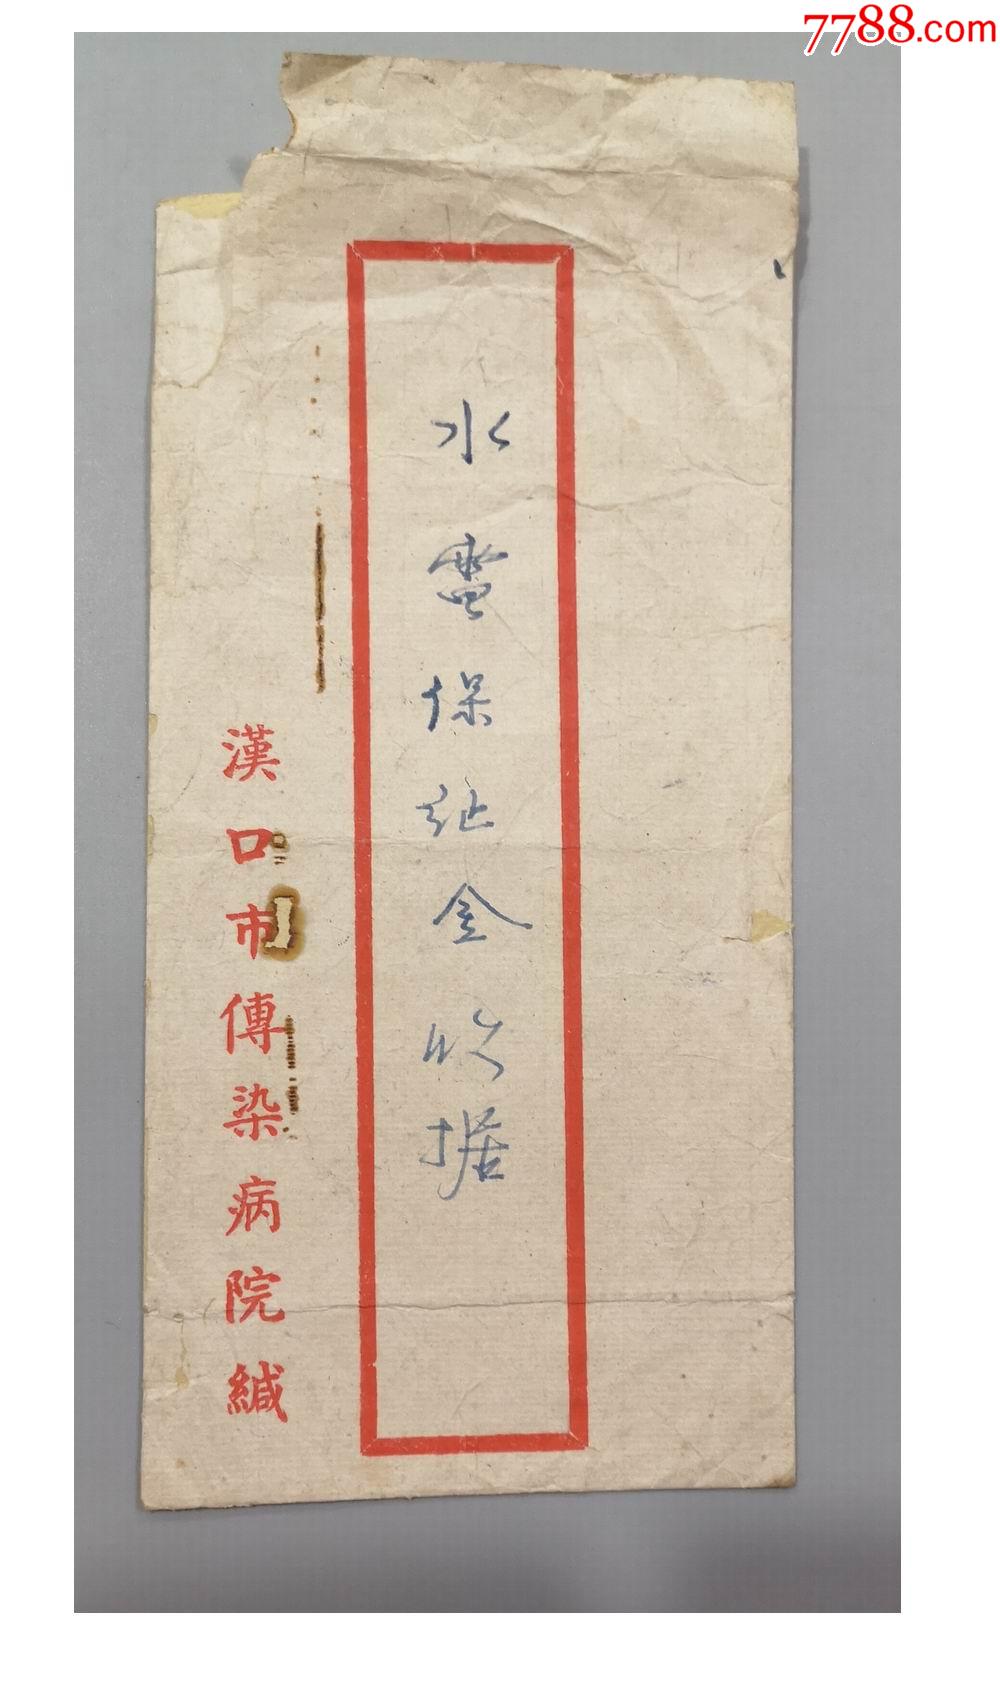 7788.com
水電保证金收据
漢口市傳染病院緘